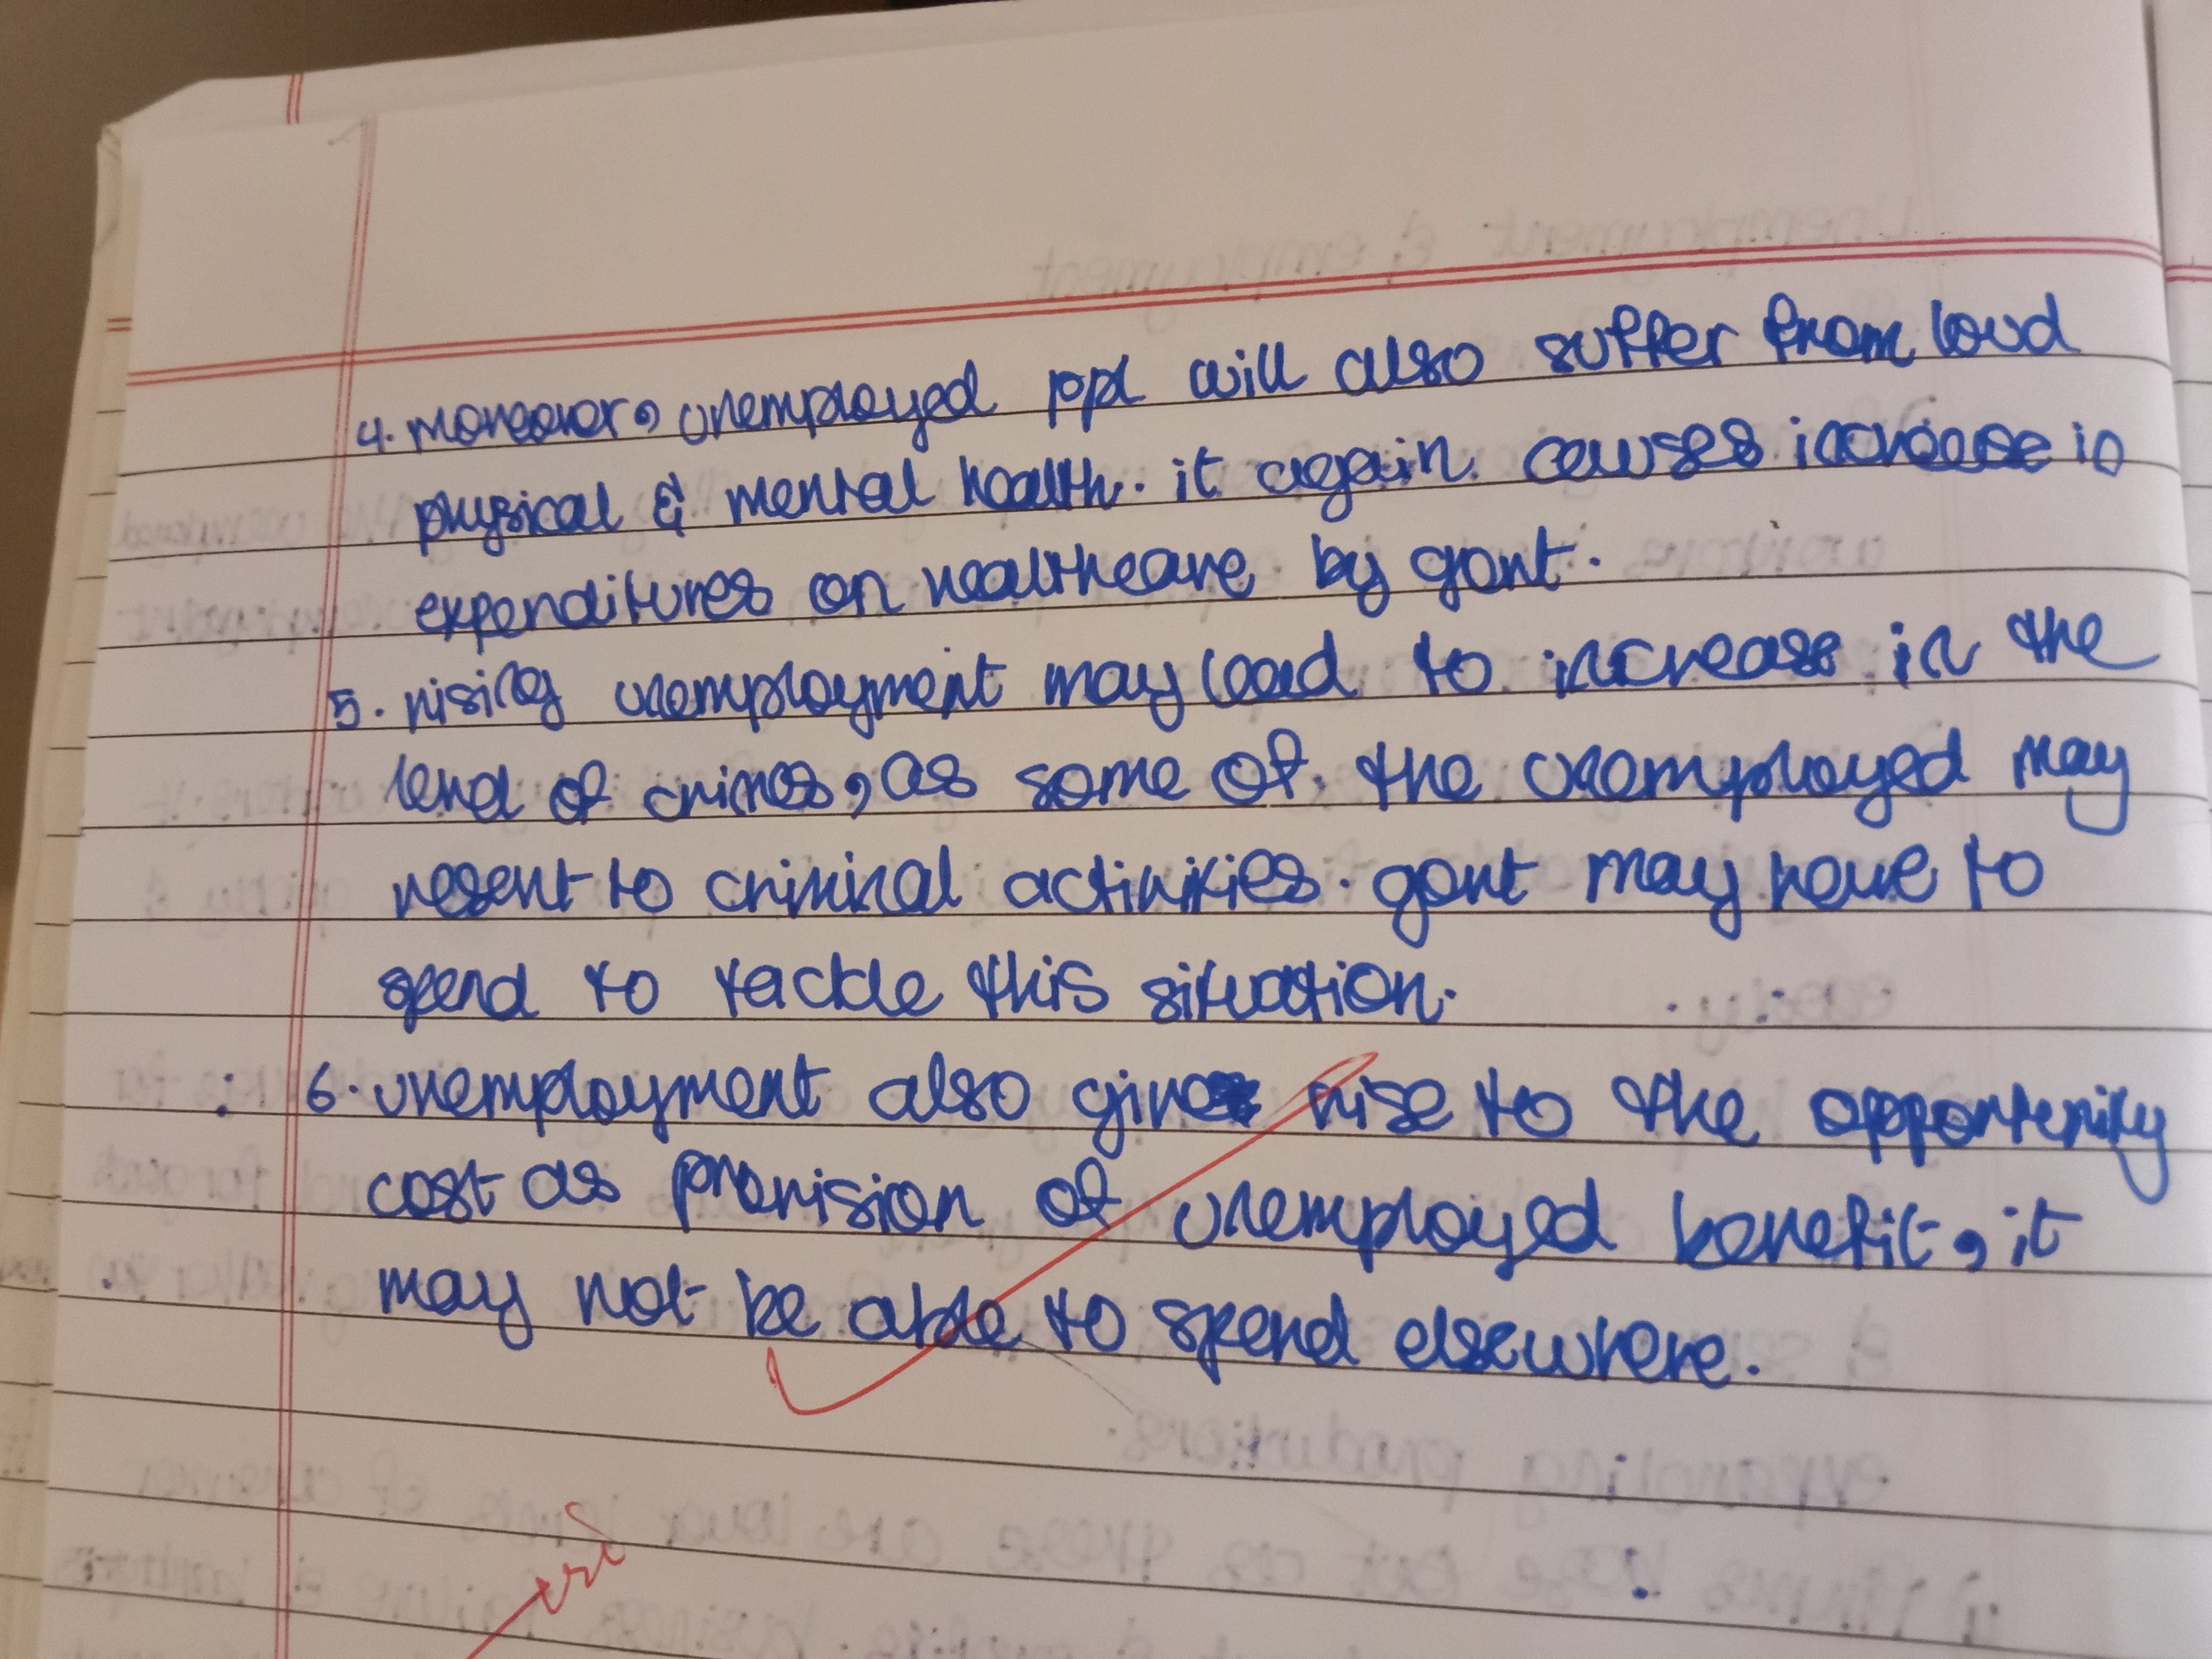 4. moreover, unemployed ppl will also suffer from loud
physical & mental health. it again causes increase in
expenditures on healthcare by govt.
5. rising unemployment may lead to increase in the
level of crimes, as some of the unemployed may
resort to criminal activities. govt may have to
spend to tackle this situation.
6. unemployment also gives rise to the opportunity
cost as provision of unemployed benefit, it
may not be able to spend elsewhere.